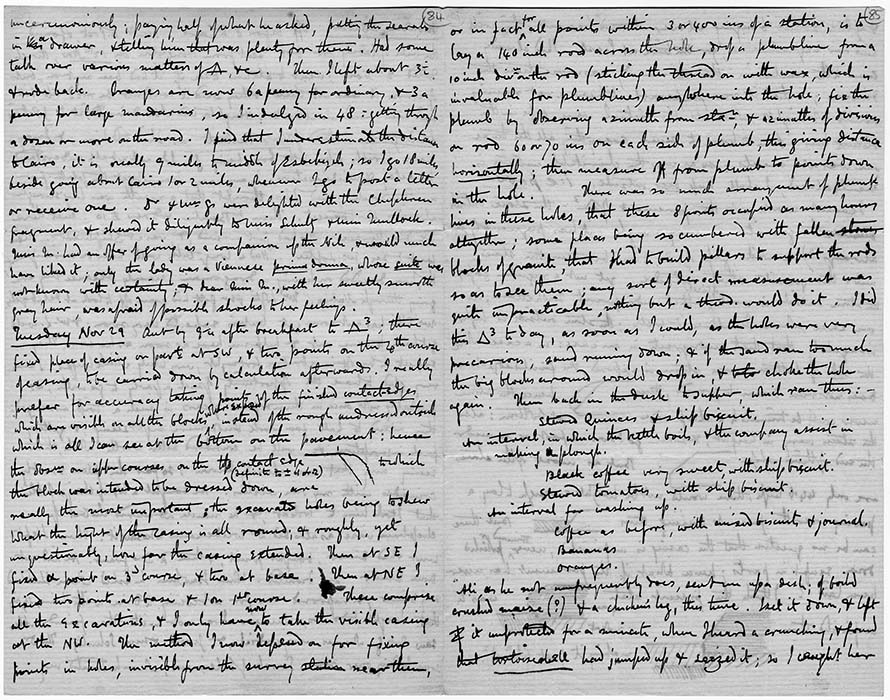 84
unceremoniously, paying half of what he asked, putting the
in his drawer, & telling him that was plenty for them. Had some
talk over various matters of Δ &c. Then I left about 3
& rode back. Oranges are now 6 a penny for ordinary, & 3 a
penny for large mandarins, so I indulged in 48: getting through
a dozen or more on the road. I find that I underestimate the distance
to Cairo, it is really 9 miles to middle of Esbekiyeh; so I go 18 miles
beside going about Cairo 1 or 2 miles, whenever I go to post a letter
or receive one. Dr & Mrs G were delighted with the Chephren
fragment, & shewed it diligently to Miss Schultz & Miss
Miss M. had an offer of going as a companion up the Nile & would much
have liked it; only the lady was a Viennese prima donna, whose suite was
not known with certainty; & dear Miss M., with her sweetly smooth
gray hair, was afraid of possible shocks to her feelings.
Tuesday Nov 29 Out by 9½ after breakfast to Δ³; there
fixed piece of casing on at SW, & two points on the 4th course
of casing, to be carried down by calculation afterwards. I really
prefer for accuracy taking points of the finished contact edges
which are visible on all the blocks instead of the rough undressed outside
which is all I can see at the bottom on the pavement: hence
the obsns on upper courses, on the contact edge to which
the block was intended to be dressed down, are
really the most important; the excavated holes being to shew
what the hight of the casing is all round, & roughly, yet
unquestionably, how far the casing extended. Then at SE I
fixed a point on 3d course, & two at base. Then at NE I
fixed two points at base & 1 on 1st course. These comprise
all the excavations, & I only have now to take the visible casing
at the NW. The method I now depend on for fixing
points in holes, invisible from the survey station near them,
85
or in fact for all points within 3 or 400 ins of a station, is to
lay a 140 inch rod across the hole, drop a plumbline from a
10 inch divn on the rod (sticking the thread on with wax, which is
invaluable for plumblines) anywhere into the hole; fix the
plumb by observing azimuth from statn, & azimuths of divisions
on rod 60 or 70 ins on each side of plumb, thus giving distance
horizontally; then measure off from plumb to points down
in the hole. There was so much arrangement of plumb
lines in these holes, that these 8 points occupied as many hours
altogether; some places being so cumbered with fallen stones
blocks of granite, that I had to build pillars to support the rods
so as to see them; any sort of direct measurement was
quite impracticable, nothing but a theod. would do it. I did
this Δ³ to day, as soon as I could, as the holes were very
precarious, sand running down; & if the sand ran too much
the big blocks around would drop in, & choke the hole
again. Then back in the dusk to supper, which ran thus: –
Stewed Quinces & ship biscuit.
An interval, in which the kettle boils, & the company assist in
making a plough.
Black coffee very sweet, with ship biscuit.
Stewed tomatoes, with ship biscuit.
An interval for washing up.
Coffee as before, with mixed biscuits & journal.
Bananas
Oranges.
Ali as he not unfrequently does, sent me up a dish; of boiled
crushed maize (?) & a chicken's leg, this time. I set it down, & left
it unprotected for a minute, when I heard a crunching, & found
that tortoiseshell had jumped up & seized it; so I caught her